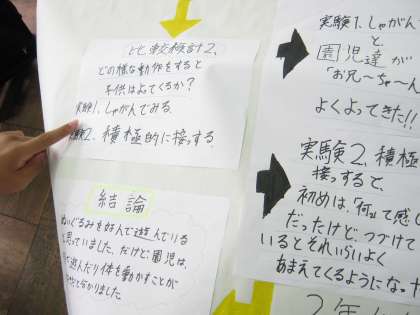 比較検討2、
どの様な動作をすると
子供はよてくるか?
実験1.しゃがんでみる.
実験2.積極的に接っする.
結論
ぬいぐるみを好んで遊んでいる
と思っていました。だけど園児は、
遊んだり体を動かすことが
と分かりました
実験1.しゃがん
と
園児達が
「お兄〜ちゃ〜ん
よくよってきた!!
実験2、積極
接っすると、
初めは、「何」って感じ
だったけど、つづけて
いるとそれいらいよく
あまえてくるようになった
2年